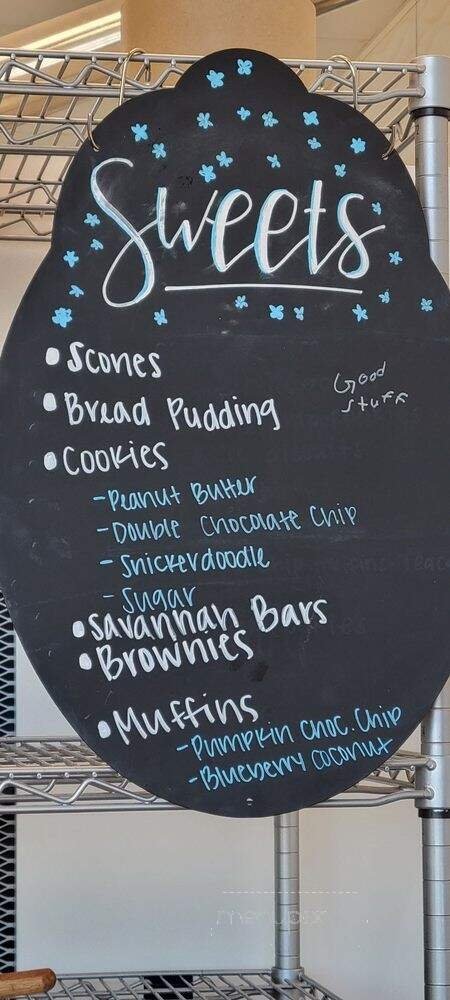 Sweets
• Scones
Good
stuff
• Bread Pudding
• Cookies
- Peanut Butter
- Double Chocolate Chip
- Snickerdoodle
- Sugar
• Savannah Bars
• Brownies
• Muffins
- Pumpkin Choc. Chip
- Blueberry coconut